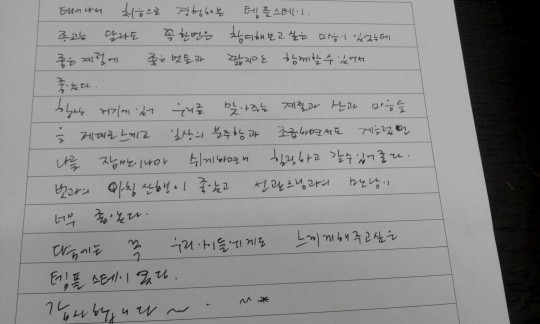 태어나서 처음으로 경험해보는 템플스테이.
종교는 달라도 꼭 한번은 참여해보고 싶은 마음이 있었는데
좋은 계절에 좋은 벗들과 짧지만 함께할 수 있어서
좋았다.
항상 거기에 있어 우리를 맞아주는 계절과 산과 마음들
을 제대로 느끼고 일상의 분주함과 조급하면서도 게으른
나를 잠재느나마 쉬게하면서 힐링하고 갈수있어 좋다.
벗과의 아침산행이 좋았고 선관스님과의 만남이
너무 좋았다.
다음에는 꼭 우리 아이들에게도 느끼게해주고싶은
템플스테이 였다.
감사합니다 ~ . ~*